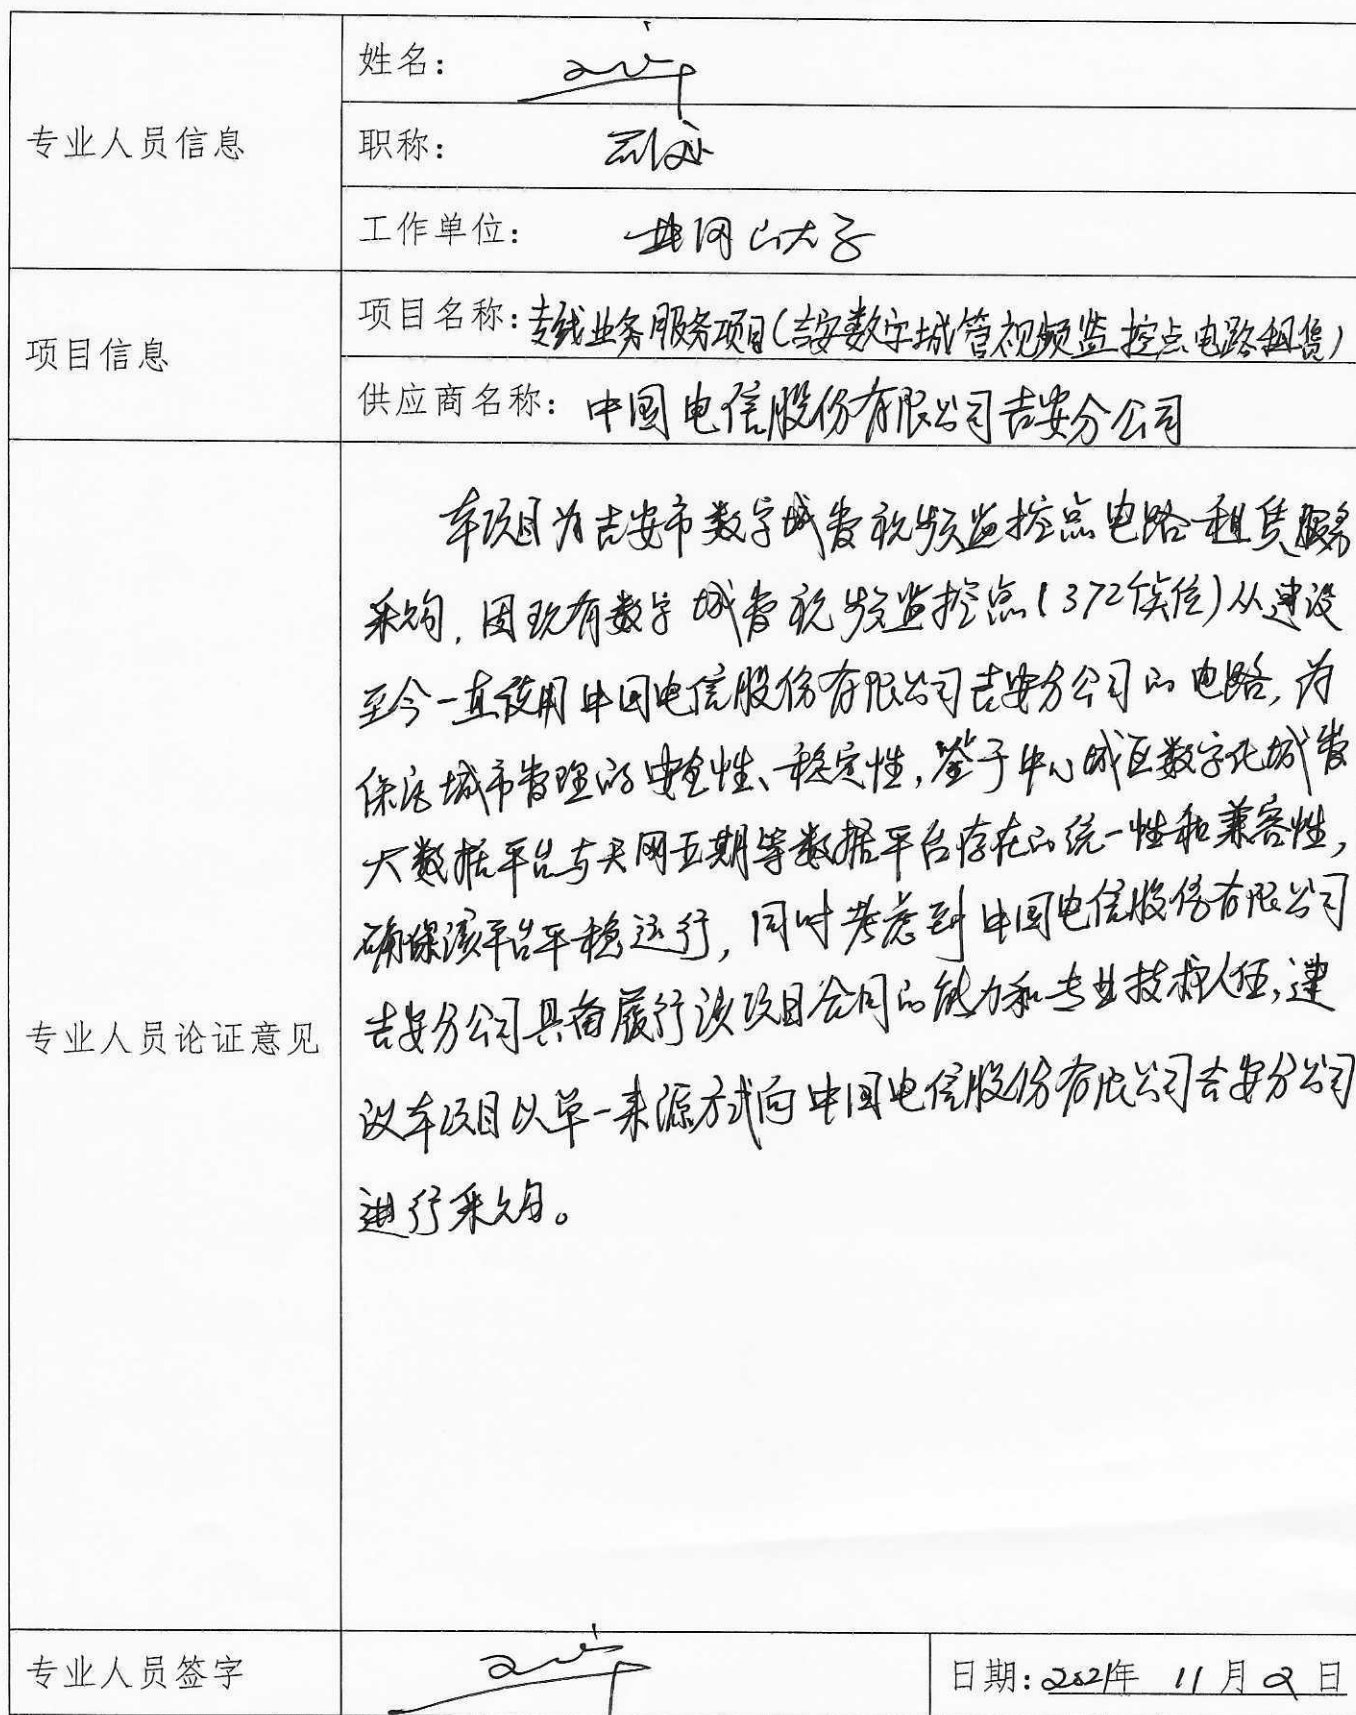 专业人员信息
姓名：
职称：副教授
工作单位：井冈山大学
项目信息
项目名称：专线业务服务项目（吉安数字城管视频监控点电路租赁）
供应商名称：中国电信股份有限公司吉安分公司
专业人员论证意见
本项目为吉安市数字城管视频监控点电路租赁服务
采购，因现有数字城管视频监控点（372个点位）从建设
至今一直使用中国电信股份有限公司吉安分公司的电路，为
保障城市管理的安全性、稳定性，鉴于中心城区数字化城管
大数据平台与天网五期等数据平台存在的统一性和兼容性，
确保该平台平稳运行，同时考虑到中国电信股份有限公司
吉安分公司具备履行该项目合同的能力和专业技术人伍，建
议本项目以单一来源方式向中国电信股份有限公司吉安分公司
进行采购。
专业人员签字
日期：2021年 11月2日